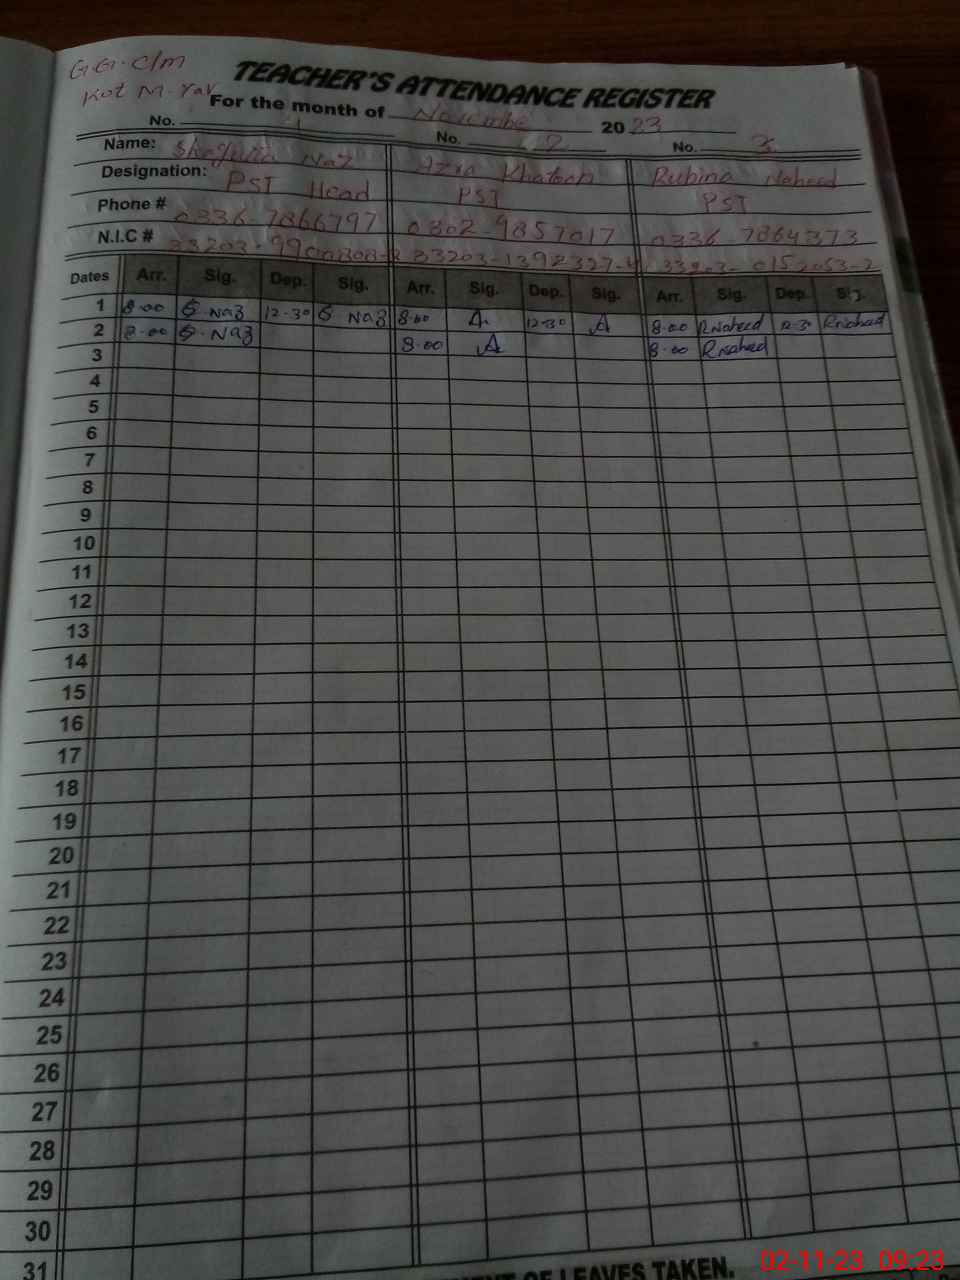 G.G. C/M
Kot M. Yar
TEACHER'S ATTENDANCE REGISTER
For the month of Novembe 2023
No. 1 No. 2 No. 3
Name: Naz Azra Khatoon Rubina Naheed
Designation: PST Head PST PST
Phone # 0336-7866797 0302-9857017 0336-7864373
N.I.C # 33203-1398327-4 33203-0152053-2
Dates Arr. Sig. Dep. Sig. Arr. Sig. Dep. Sig. Arr. Sig. Dep. Sig.
1 8-00 S.Naz 12-30 S Naz 8-00 A 12-30 A 8-00 RNaheed 12-30 RNaheed
2 8-00 S.Naz 8-00 A 8-00 RNaheed
3
4
5
6
7
8
9
10
11
12
13
14
15
16
17
18
19
20
21
22
23
24
25
26
27
28
29
30
31
OF LEAVES TAKEN.
02-11-23 09:23